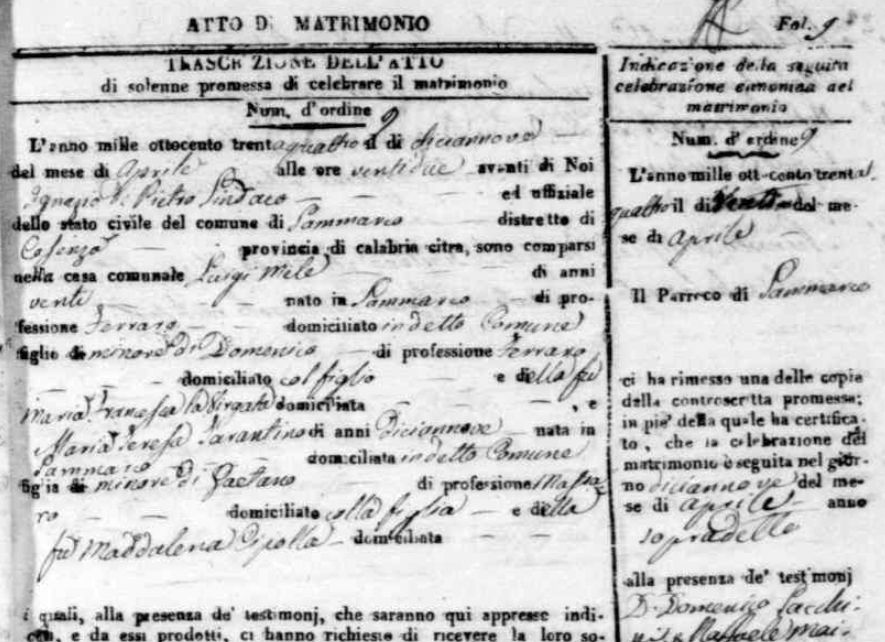 ATTO DI MATRIMONIO
Fol. 9
TRASCRIZIONE DELL'ATTO
di solenne promessa di celebrare il matrimonio
Num. d'ordine 9
L'anno mille ottocento trentaquattro il di diciannove
del mese di Aprile alle ore ventidue avanti di Noi
Ignazio de Pietro Sindaco ed uffiziale
dello stato civile del comune di Sammarco distretto di
Cosenza provincia di calabria citra, sono comparsi
nella casa comunale Luigi Mele di anni
venti nato in Sammarco di pro-
fessione Ferraro domiciliato in detto Comune
figlio minore di Domenico di professione Ferraro
domiciliato col figlio e della fu
Maria Francesca la Virgata domiciliata , e
Maria Teresa Tarantino di anni Diciannove nata in
Sammarco domiciliata in detto Comune
figlia minore di Gaetano di professione Massa
ro domiciliato colla figlia e della
fu Maddalena Cipolla domiciliata
i quali, alla presenza de' testimonj, che saranno qui appresso indi-
cati, e da essi prodotti, ci hanno richiesto di ricevere la loro so-
Indicazione della seguita
celebrazione canonica del
matrimonio
Num. d'ordine 9
L'anno mille ottocento trenta
quattro il di Venti del me-
se di Aprile
Il Parroco di Sammarco
ci ha rimesso una delle copie
della controscritta promessa;
in pie' della quale ha certifica-
to, che la celebrazione del
matrimonio è seguita nel gior-
no diciannove del me-
se di Aprile anno
sopradetto
alla presenza de' testimonj
D. Domenico Sacchi-